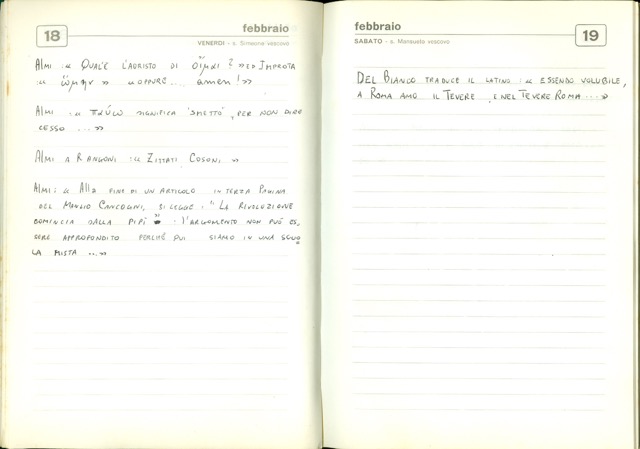 18
febbraio
VENERDI - s. Simeone vescovo
Almi :« QUAL'È L'AORISTO DI οἴμαι ? »«» IMPROTA
:« ὤμην » «OPPURE... amen ! »
Almi :« παύω SIGNIFICA 'SMETTO', PER NON DIRE
CESSO ...»
Almi A RANGONI :« ZITTATI COSONI »
Almi :« Alla FINE DI UN ARTICOLO IN TERZA PAGINA
DEL MANLIO CANCOGNI, SI LEGGE : " LA RIVOLUZIONE
COMINCIA DALLA PIPÌ" : l'ARGOMENTO NON PUÒ ES,
SERE APPROFONDITO PERCHÉ QUI SIAMO IN UNA SCUO
LA MISTA ...»
febbraio
19
SABATO - s. Mansueto vescovo
DEL BIANCO TRADUCE IL LATINO :« ESSENDO VOLUBILE,
A ROMA AMO IL TEVERE, E NEL TEVERE ROMA ...»